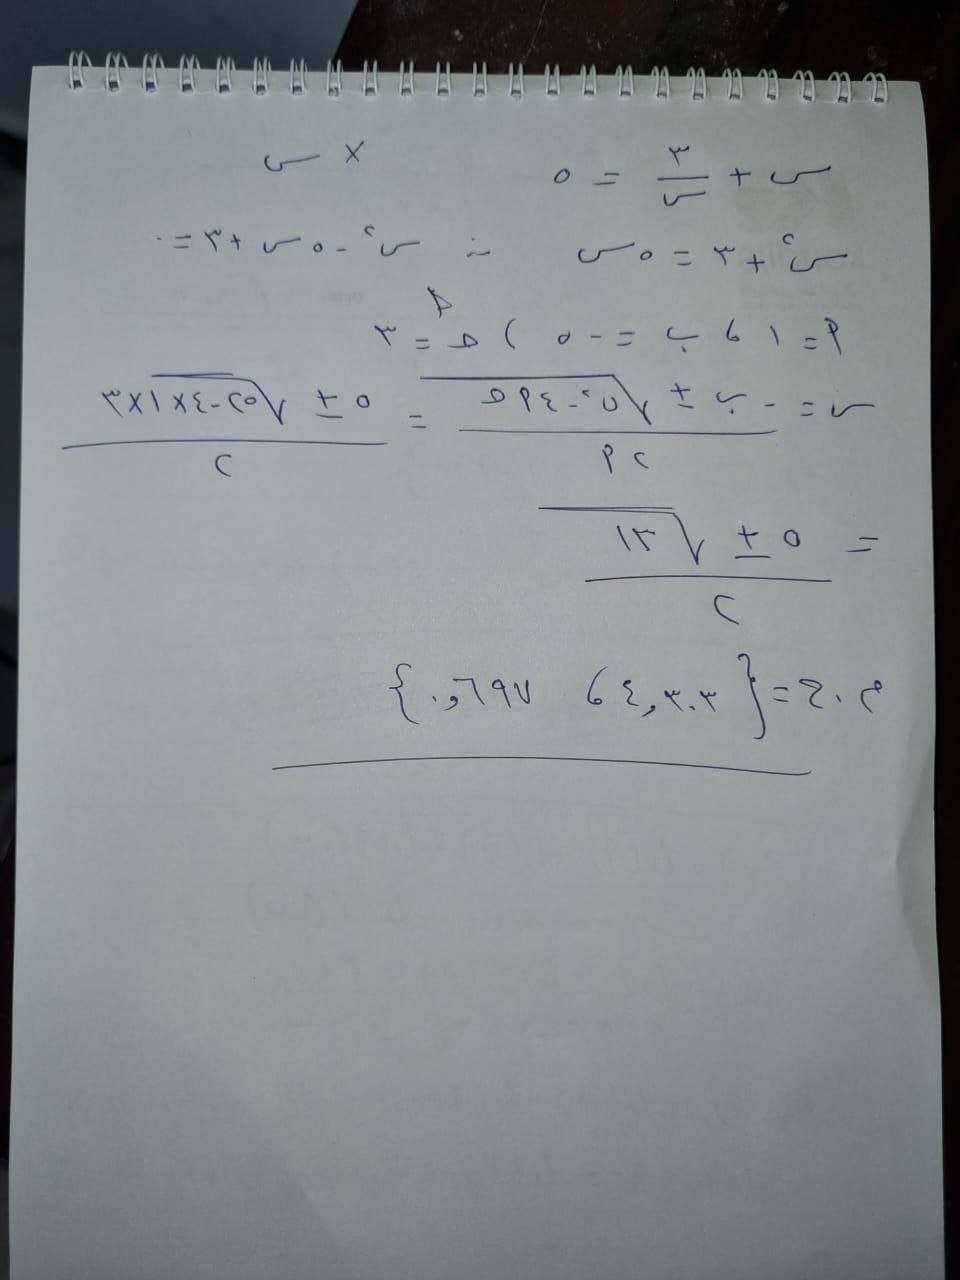 س + ٣/س = ٥ × س
س٢ + ٣ = ٥س ∴ س٢ - ٥س + ٣ = ٠
٢ = ١ ، ب = - ٥ ) حـ = ٣
س = - ب ± √ب٢ - ٤أحـ / ٢أ = ٥ ± √٢٥ - ٤×١×٣ / ٢
= ٥ ± √١٣ / ٢
م.ح = { ٤,٣٠٣ ، ٠,٦٩٧ }